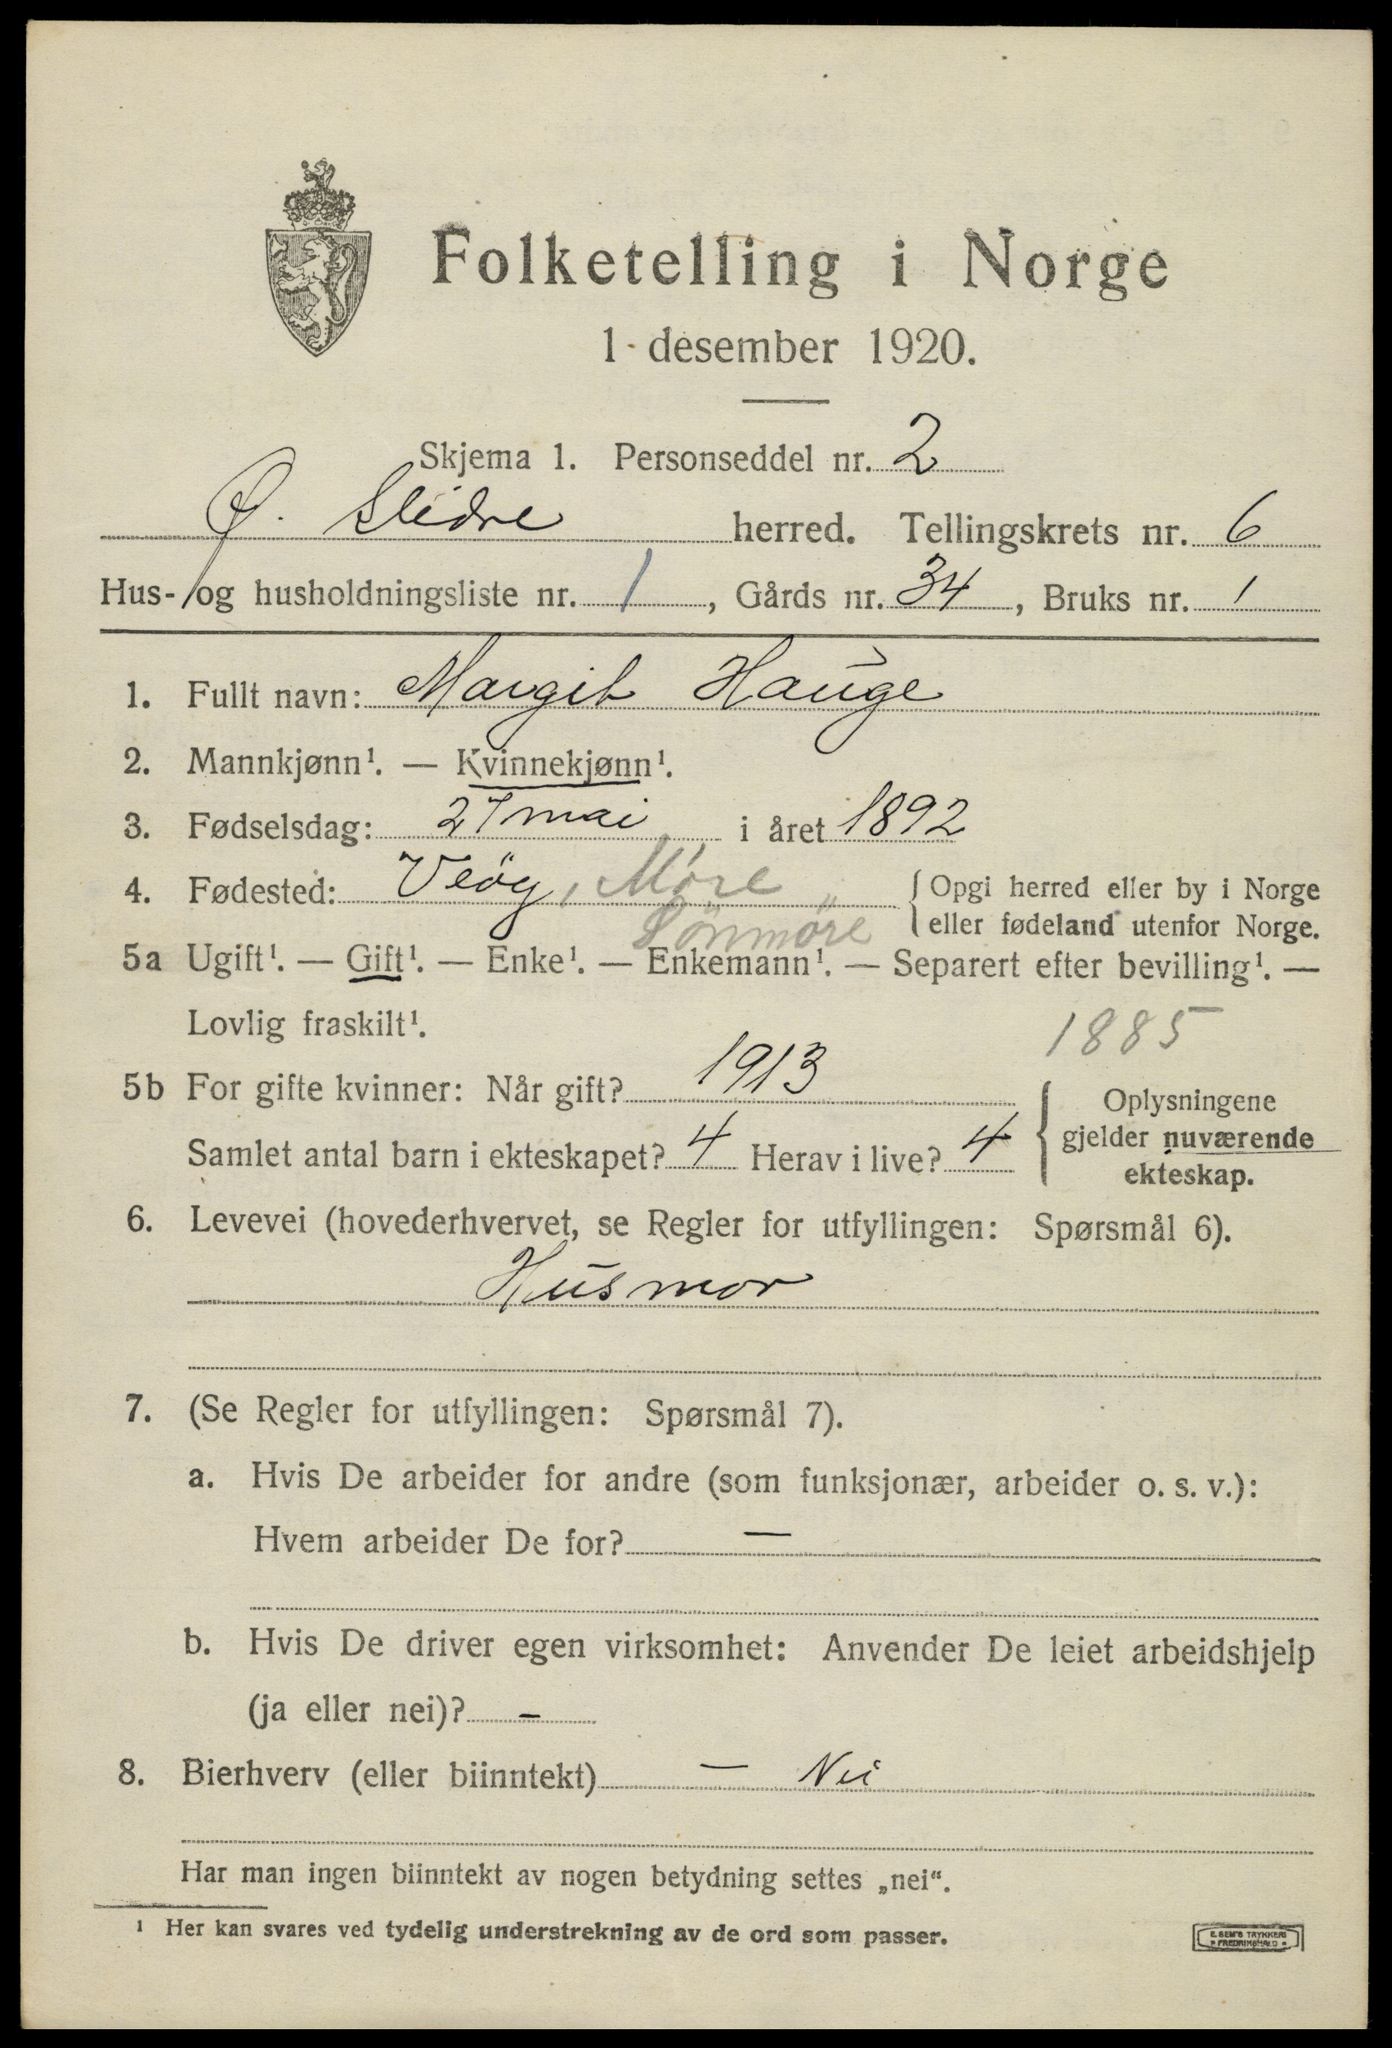 Folketelling i Norge
1 desember 1920.
Skjema 1. Personseddel nr. 2
Ø. Slidre herred. Tellingskrets nr. 6
Hus- og husholdningsliste nr. 1, Gårds nr. 34, Bruks nr. 1
1. Fullt navn: Margit Hauge
2. Mannkjønn¹. — Kvinnekjønn¹.
3. Fødselsdag: 27 mai i året 1892
4. Fødested: Veöy, Møre { Opgi herred eller by i Norge
Sönmöre eller fødeland utenfor Norge.
5a Ugift¹. — Gift¹. — Enke¹. — Enkemann¹. — Separert efter bevilling¹. —
Lovlig fraskilt¹. 1885
5b For gifte kvinner: Når gift? 1913 { Oplysningene
Samlet antal barn i ekteskapet? 4 Herav i live? 4 gjelder nuværende
ekteskap.
6. Levevei (hovederhvervet, se Regler for utfyllingen: Spørsmål 6).
Husmor
7. (Se Regler for utfyllingen: Spørsmål 7).
a. Hvis De arbeider for andre (som funksjonær, arbeider o. s. v.):
Hvem arbeider De for? —
b. Hvis De driver egen virksomhet: Anvender De leiet arbeidshjelp
(ja eller nei)? –
8. Bierhverv (eller biinntekt) — Nei
Har man ingen biinntekt av nogen betydning settes „nei“.
¹ Her kan svares ved tydelig understrekning av de ord som passer.
E. SEM'S TRYKKERI
FREDRIKSHALD